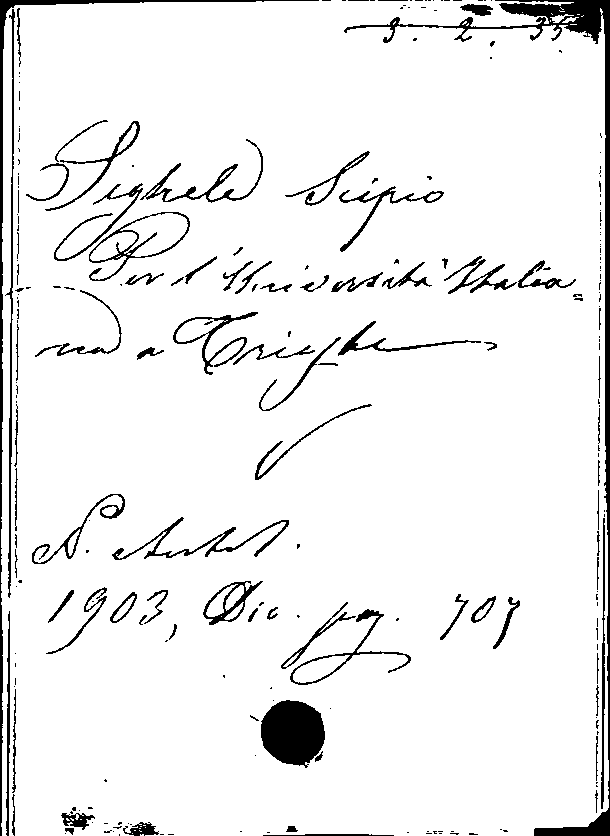 3. 2. 35
Sighele Scipio
Per l'Università Italia=
na a Trieste
N. Antol.
1903, Dic. pag. 707